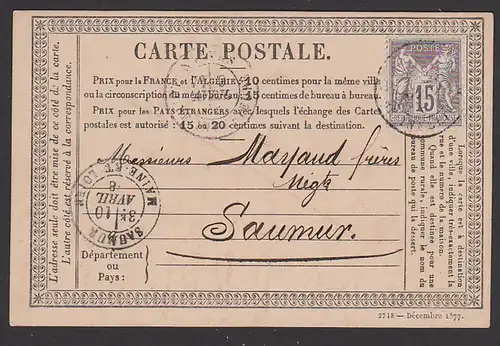 CARTE POSTALE.
POSTE
15
PRIX pour la FRANCE et l'ALGÉRIE: 10 centimes pour la même ville
ou la circonscription du même bureau, 15 centimes de bureau à bureau.
PRIX pour les PAYS ÉTRANGERS avec lesquels l'échange des Cartes
postales est autorisé: 15 ou 20 centimes suivant la destination.
L'adresse seule doit être mise de ce côté de la carte.
L'autre côté est réservé à la correspondance.
Lorsque la carte est à destination
d'une ville, indiquer très-exactement la
rue et le numéro de la maison.
Quand elle est destinée pour une
commune rurale, indiquer le nom du
bureau de poste qui la dessert.
Messieurs Mayaud frères
Négts
Saumur.
SAUMUR
MAINE ET LOIRE
3E 10
AVRIL
8
Département
ou
Pays:
2748 — Décembre 1877.